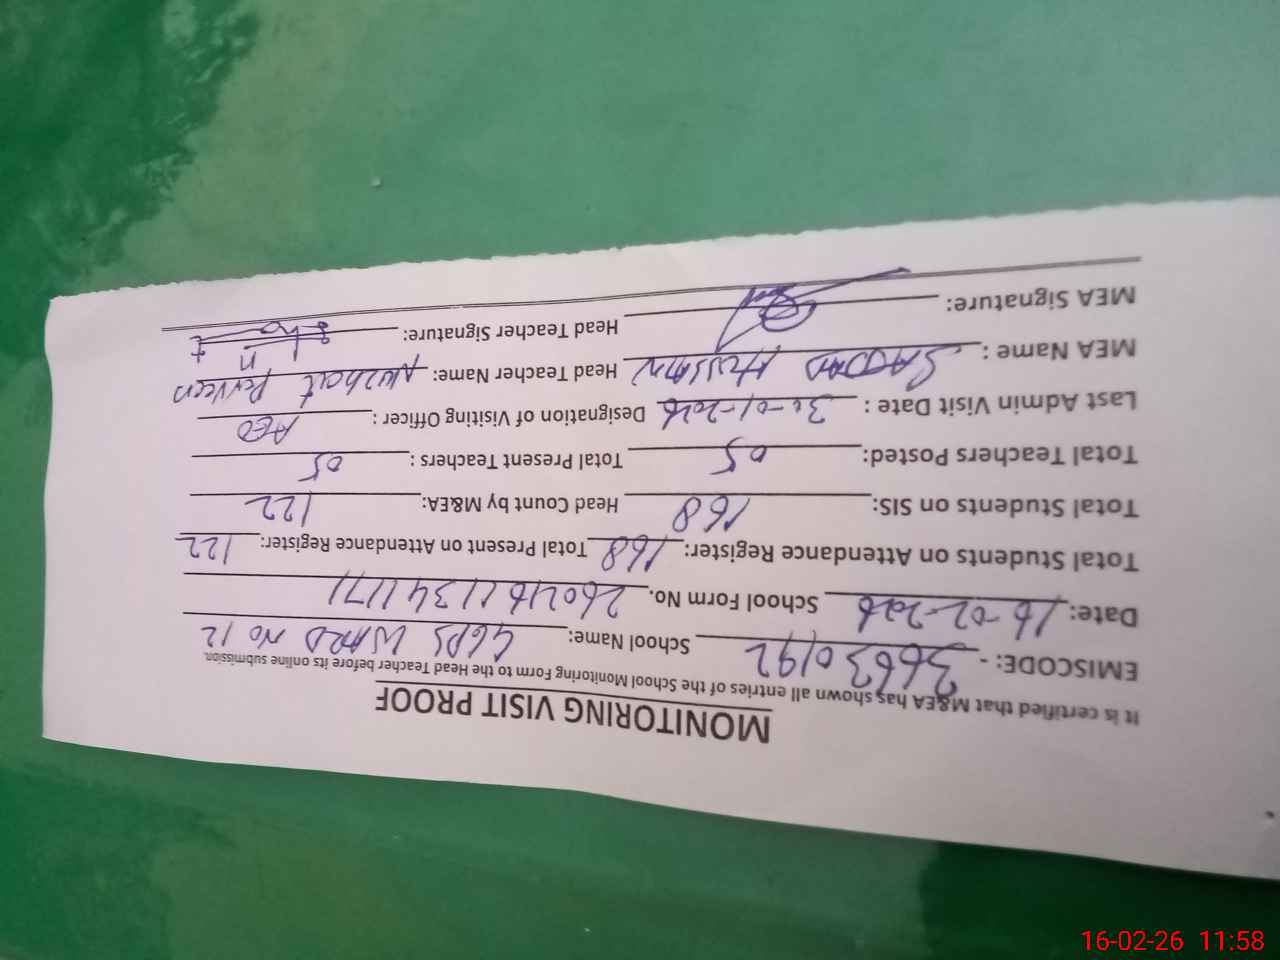 MONITORING VISIT PROOF
It is certified that M&EA has shown all entries of the School Monitoring Form to the Head Teacher before its online submission.
EMISCODE: - 36630192 School Name: GGPS WARD NO 12
Date: 16-02-2026 School Form No. 26021611341171
Total Students on Attendance Register: 168 Total Present on Attendance Register: 122
Total Students on SIS: 168 Head Count by M&EA: 122
Total Teachers Posted: 05 Total Present Teachers : 05
Last Admin Visit Date : 30-01-2026 Designation of Visiting Officer : AEO
MEA Name : SADDAM HUSSAIN Head Teacher Name: Nuzhat Perveen
MEA Signature: Head Teacher Signature:
16-02-26 11:58